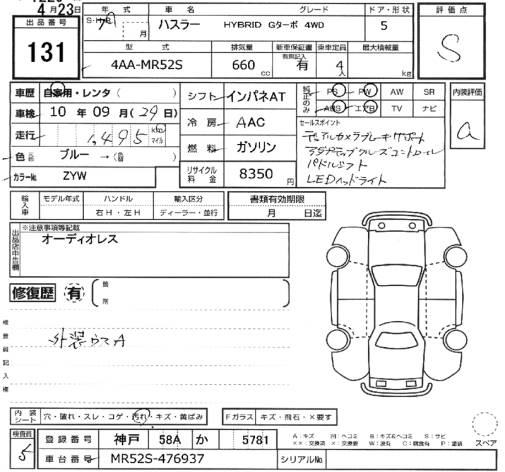 4月23日
出品番号
131
年式
S・H・R
7
月
車名
ハスラー
グレード
HYBRID Gターボ 4WD
ドア・形状
5
評価点
S
型式
4AA-MR52S
排気量
660 cc
新車保証書
有無記入
有
乗車定員
4
人
最大積載量
kg
車歴 自家用・レンタ( )
車検 10年09月(29日)
走行 1,495 km マイル
色 ブルー →( )
カラーNo. ZYW
シフト インパネAT
冷房 AAC
燃料 ガソリン
リサイクル料金 8350円
純正のみ
PS PW AW SR
ABS エアB TV ナビ
セールスポイント
デュアルカメラブレーキサポート
アダプティブクルーズコントロール
パドルシフト
LEDヘッドライト
内装評価
a
輸入車
モデル年式
ハンドル
右H・左H
輸入区分
ディーラー・並行
書類有効期限
月 日迄
出品店申告欄
※注意事項等記載
オーディオレス
修復歴 有
箇所
検査員記入欄
内装シート 穴・破れ・スレ・コゲ・汚れ・キズ・黄ばみ
Fガラス キズ・飛石・×要す
検査員
登録番号 神戸 58A か 5781
車台番号 MR52S-476937
シリアルNo.
A:キズ U:ヘコミ B:キズ&ヘコミ S:サビ
××:交換済 ×:交換要 W:波有 C:腐食有 P:塗装
スペア